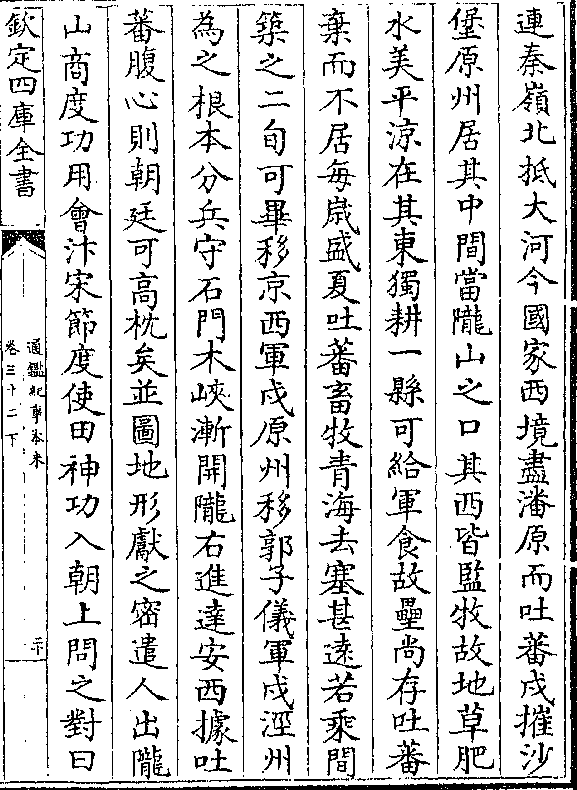 連秦嶺北抵大河今國家西境盡潘原而吐蕃戍摧沙
堡原州居其中間當隴山之口其西皆監牧故地草肥
水美平涼在其東獨耕一縣可給軍食故壘尚存吐蕃
棄而不居每嵗盛夏吐蕃畜牧青海去塞甚逺若乘間
築之二旬可畢移京西軍戍原州移郭子儀軍戍涇州
為之根本分兵守石門木峽漸開隴右進達安西據吐
蕃腹心則朝廷可高枕矣並圖地形獻之密遣人出隴
山商度功用㑹汴宋節度使田神功入朝上問之對曰
欽定四庫全書
通鑑紀事本末
卷三十二下
二十